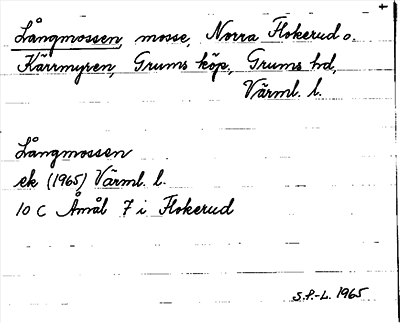 Långmossen, mosse, Norra Flokerud o.
Kärrmyren, Grums köp., Grums hd,
Värml. l.
Långmossen
ek (1965) Värml. l.
10 C Åmål 7 i Flokerud
S.P.-L. 1965